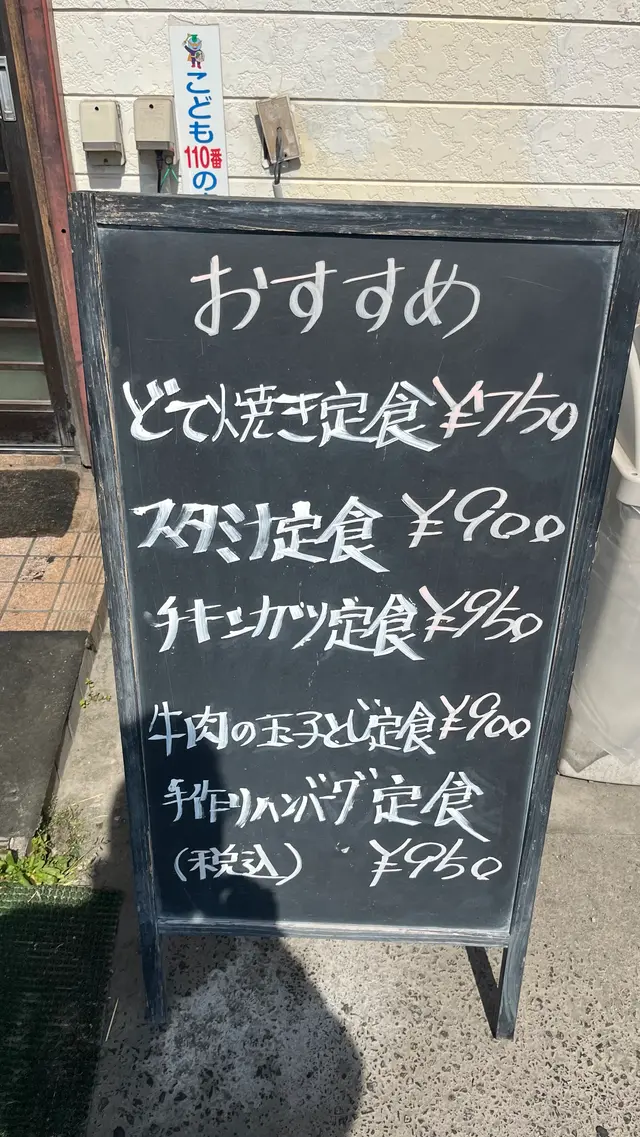 こども110番の
おすすめ
どて焼き定食 ¥750
スタミナ定食 ¥900
チキンカツ定食 ¥950
牛肉の玉子とじ定食 ¥900
手作りハンバーグ定食
(税込) ¥950